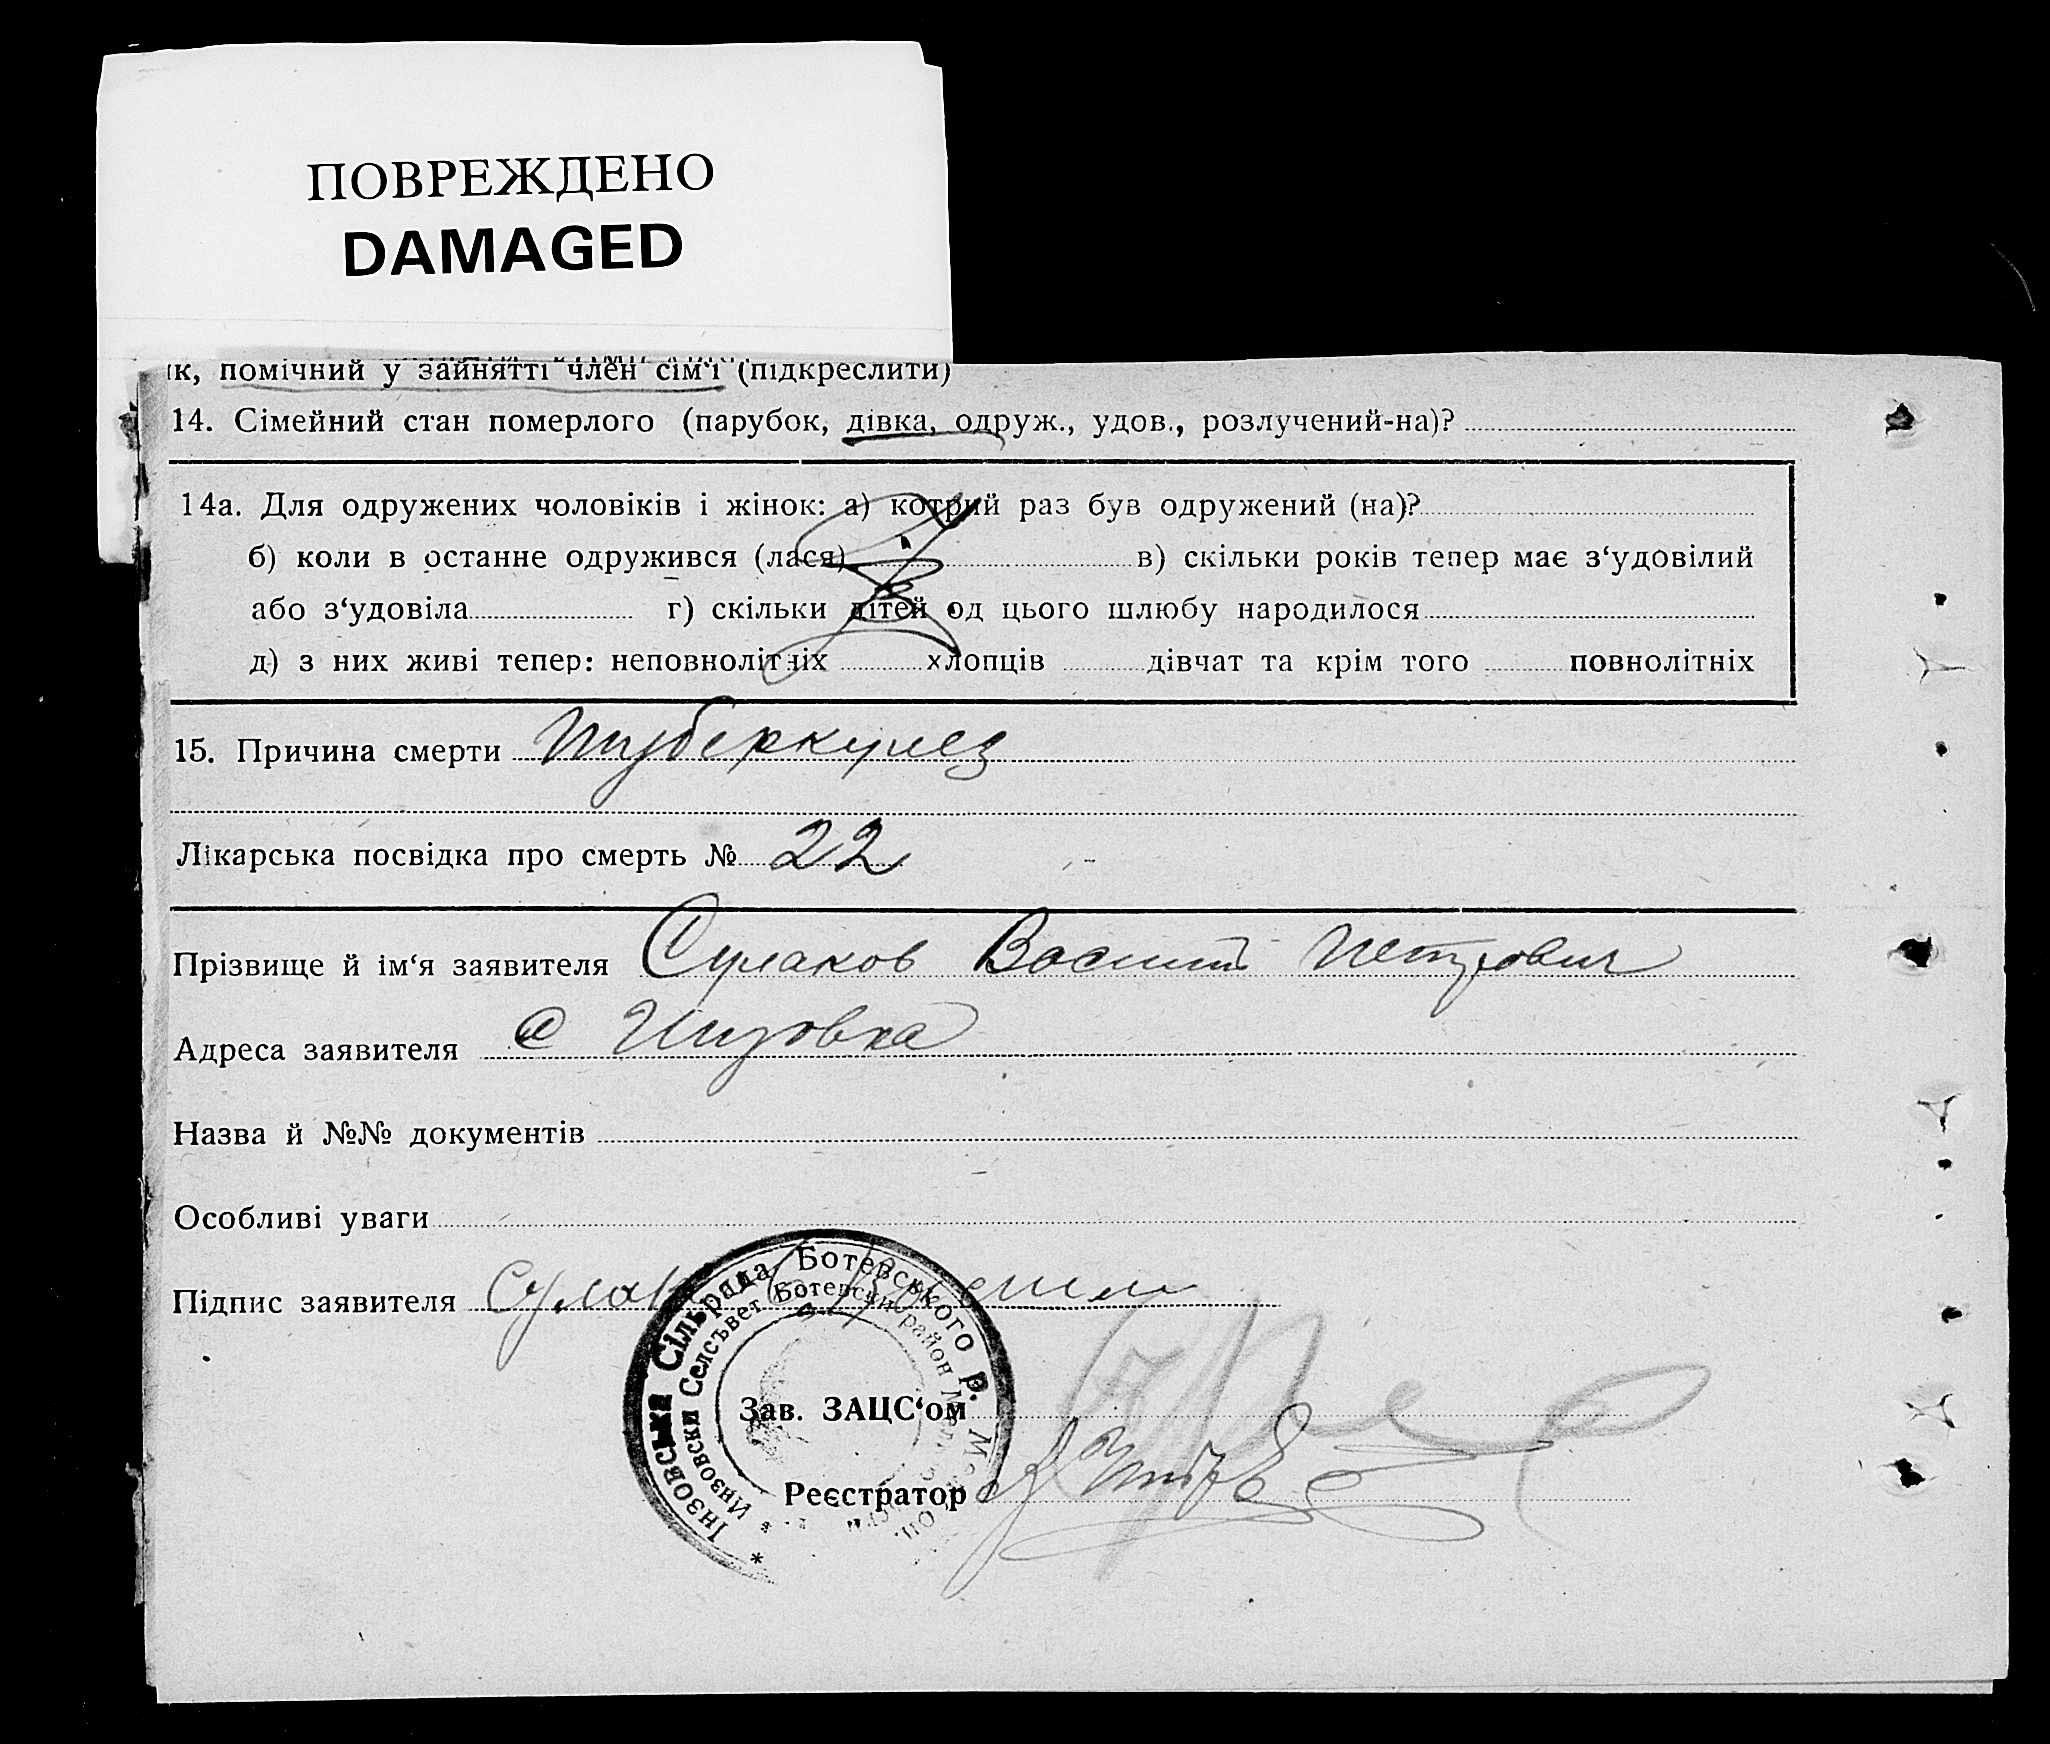 ПОВРЕЖДЕНО
DAMAGED
ік, помічний у зайнятті член сім'ї (підкреслити)
14. Сімейний стан померлого (парубок, дівка, одруж., удов., розлучений-на)?
14а. Для одружених чоловіків і жінок: а) котрий раз був одружений (на)?
б) коли в останне одружився (лася) в) скільки років тепер має з‘удовілий
або з‘удовіла г) скільки дітей од цього шлюбу народилося
д) з них живі тепер: неповнолітніх хлопців дівчат та крім того повнолітніх
15. Причина смерти Туберкулез
Лікарська посвідка про смерть № 22
Прізвище й ім‘я заявителя Сулаков Василий Петрович
Адреса заявителя с Инзовка
Назва й №№ документів
Особливі уваги
Підпис заявителя Сулаков
Інзовська Сільрада, Ботевського р.
Инзовски Селсъвет Ботевски район
Зав. ЗАЦС‘ом
Реєстратор